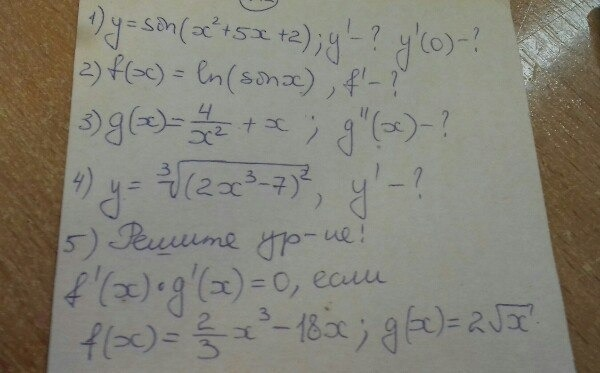 1) y = sin(x²+5x+2); y' - ? y'(0) - ?
2) f(x) = ln(sinx), f' - ?
3) g(x) = 4/x² + x ; g''(x) - ?
4) y = ∛(2x³-7)², y' - ?
5) Решите ур-ие!
f'(x)•g'(x) = 0, если
f(x) = 2/3 x³ - 18x; g(x) = 2√x